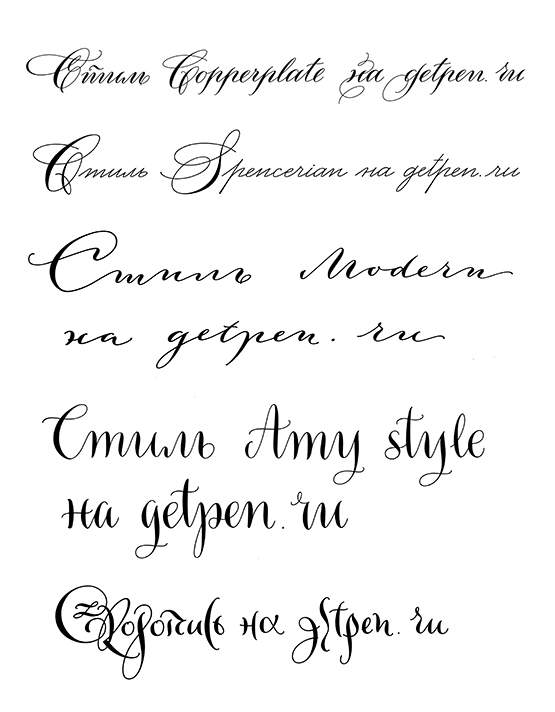 Стиль Copperplate на getpen.ru
Стиль Spencerian на getpen.ru
Стиль Modern
на getpen.ru
Стиль Amy style
на getpen.ru
на getpen.ru